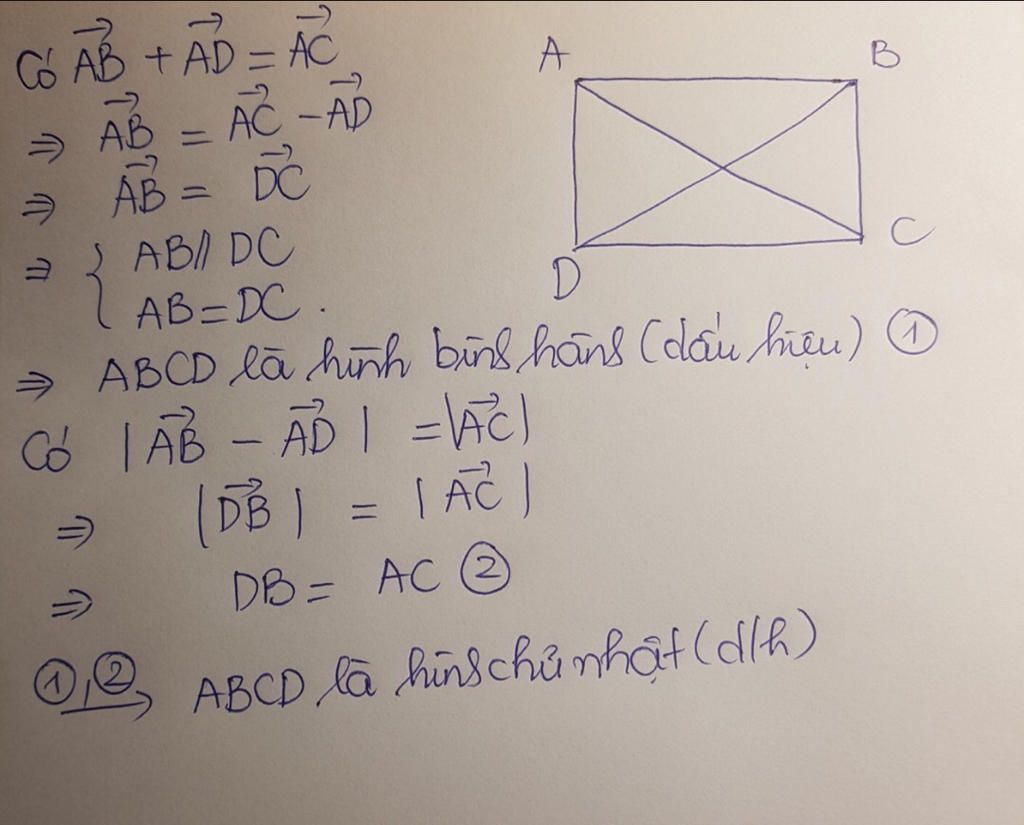 Có AB→ + AD→ = AC→
⇒ AB→ = AC→ - AD→
⇒ AB→ = DC→
⇒ { AB // DC
AB = DC.
⇒ ABCD là hình bình hành (dấu hiệu) ①
Có |AB→ - AD→| = |AC→|
⇒ |DB→| = |AC→|
⇒ DB = AC ②
①,② → ABCD là hình chữ nhật (d/h)
A
B
C
D